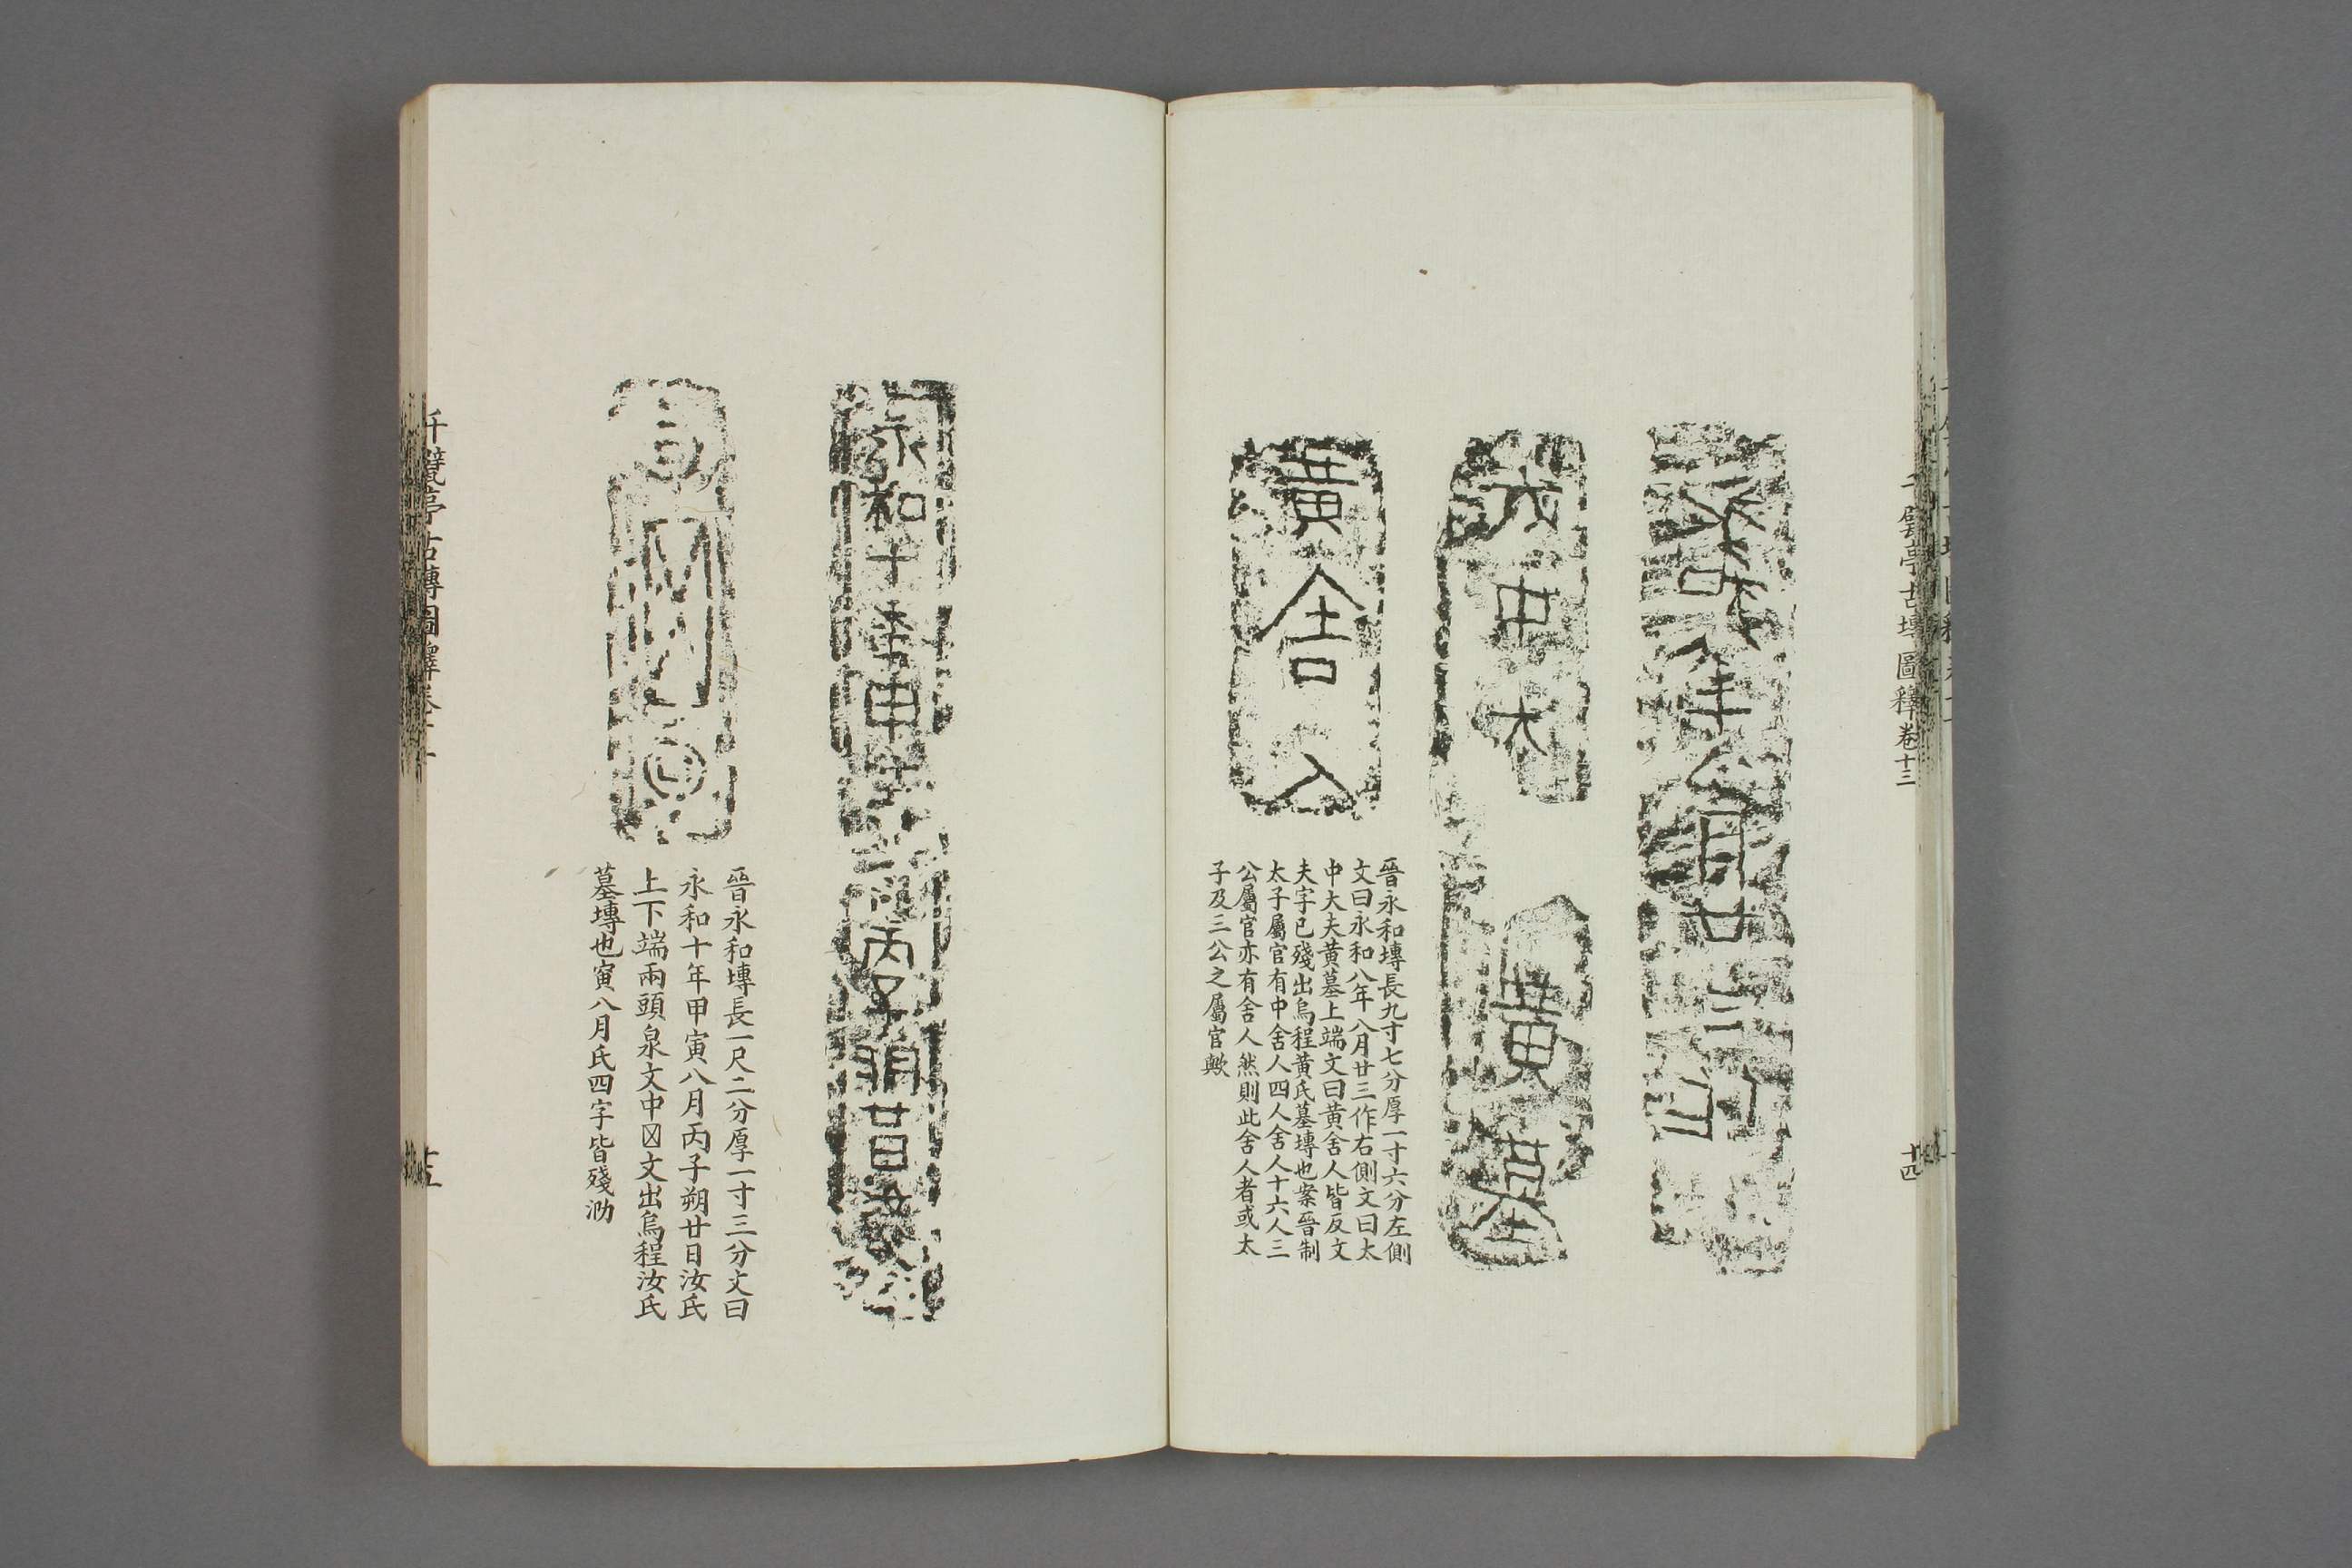 千甓亭古塼圖釋卷十三
十四
黃
墓
黃舍人
晉永和塼長九寸七分厚一寸六分左側
文曰永和八年八月廿三作右側文曰太
中大夫黃墓上端文曰黃舍人皆反文
夫字已殘出烏程黃氏墓塼也案晉制
太子屬官有中舍人四人舍人十六人三
公屬官亦有舍人然則此舍人者或太
子及三公之屬官歟
晉永和塼長一尺二分厚一寸三分文曰
永和十年甲寅八月丙子朔廿日汝氏
上下端兩頭泉文中〼文出烏程汝氏
墓塼也寅八月氏四字皆殘泐
千甓亭古塼圖釋卷十三
十五